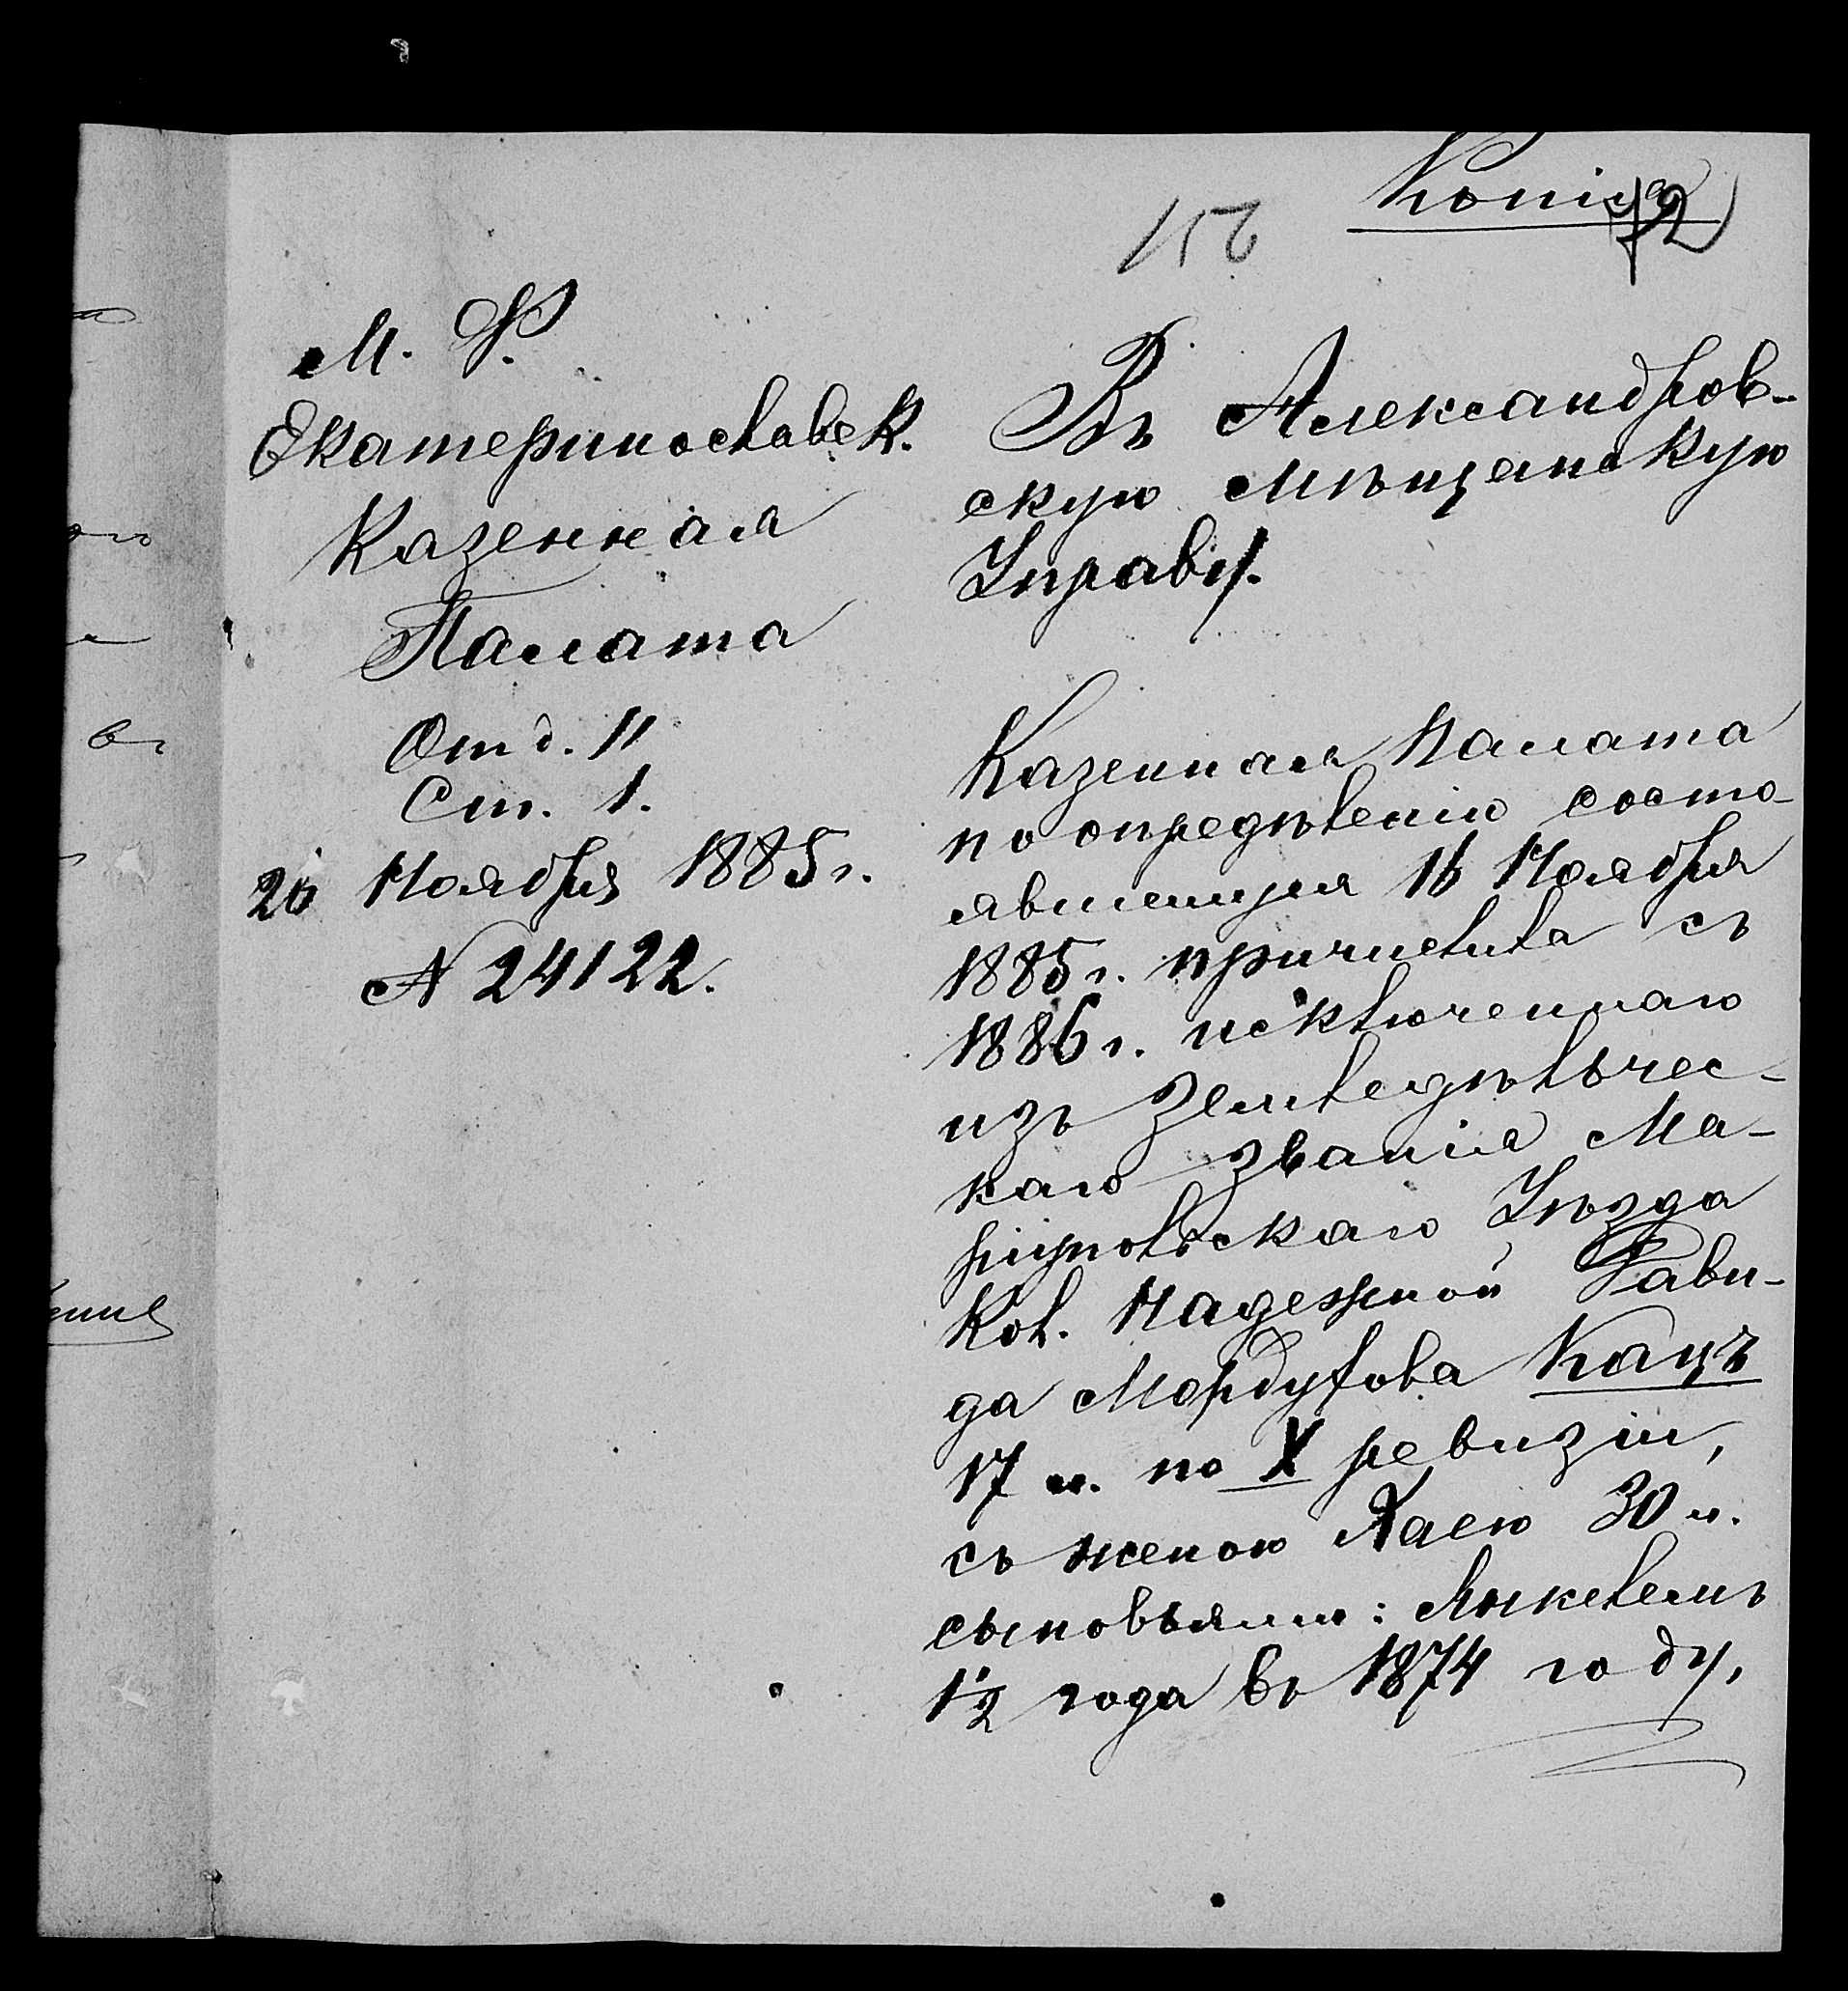 Копія
72
156
М. Ф.
Екатеринославск.
Казенная
Палата
Отд. II
Ст. 1.
20 Ноября 1885 г.
№ 24122.
Въ Александров-
скую Мѣщанскую
Управу.
Казенная Палата
по опредѣленію состо-
явшемуся 16 Ноября
1885 г. причислила съ
1886 г. исключеннаго
изъ Земледѣльчес-
каго званія Ма-
ріупольскаго Уѣзда
Кол. Надежной Дави-
да Мордухова Кацъ
17 л. по X ревизіи,
съ женою Хаею 30 л.
сыновьями: Янкелемъ
1½ года въ 1874 году,